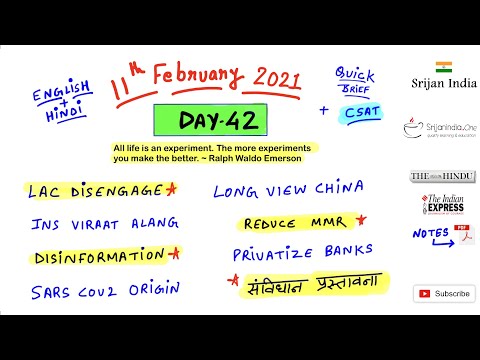 ENGLISH
+
HINDI
11th February 2021
Quick
BRIEF
+ CSAT
DAY-42
All life is an experiment. The more experiments
you make the better. ~ Ralph Waldo Emerson
Srijan India
SrijanIndia.One
quality learning & education
LAC DISENGAGE
LONG VIEW CHINA
THE HINDU
INS VIRAAT ALANG
REDUCE MMR
The Indian
EXPRESS
DISINFORMATION
PRIVATIZE BANKS
NOTES
PDF
SARS COV2 ORIGIN
संविधान प्रस्तावना
Subscribe